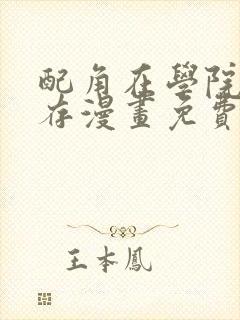 配角在學院
存漫畫免費
王本鳳